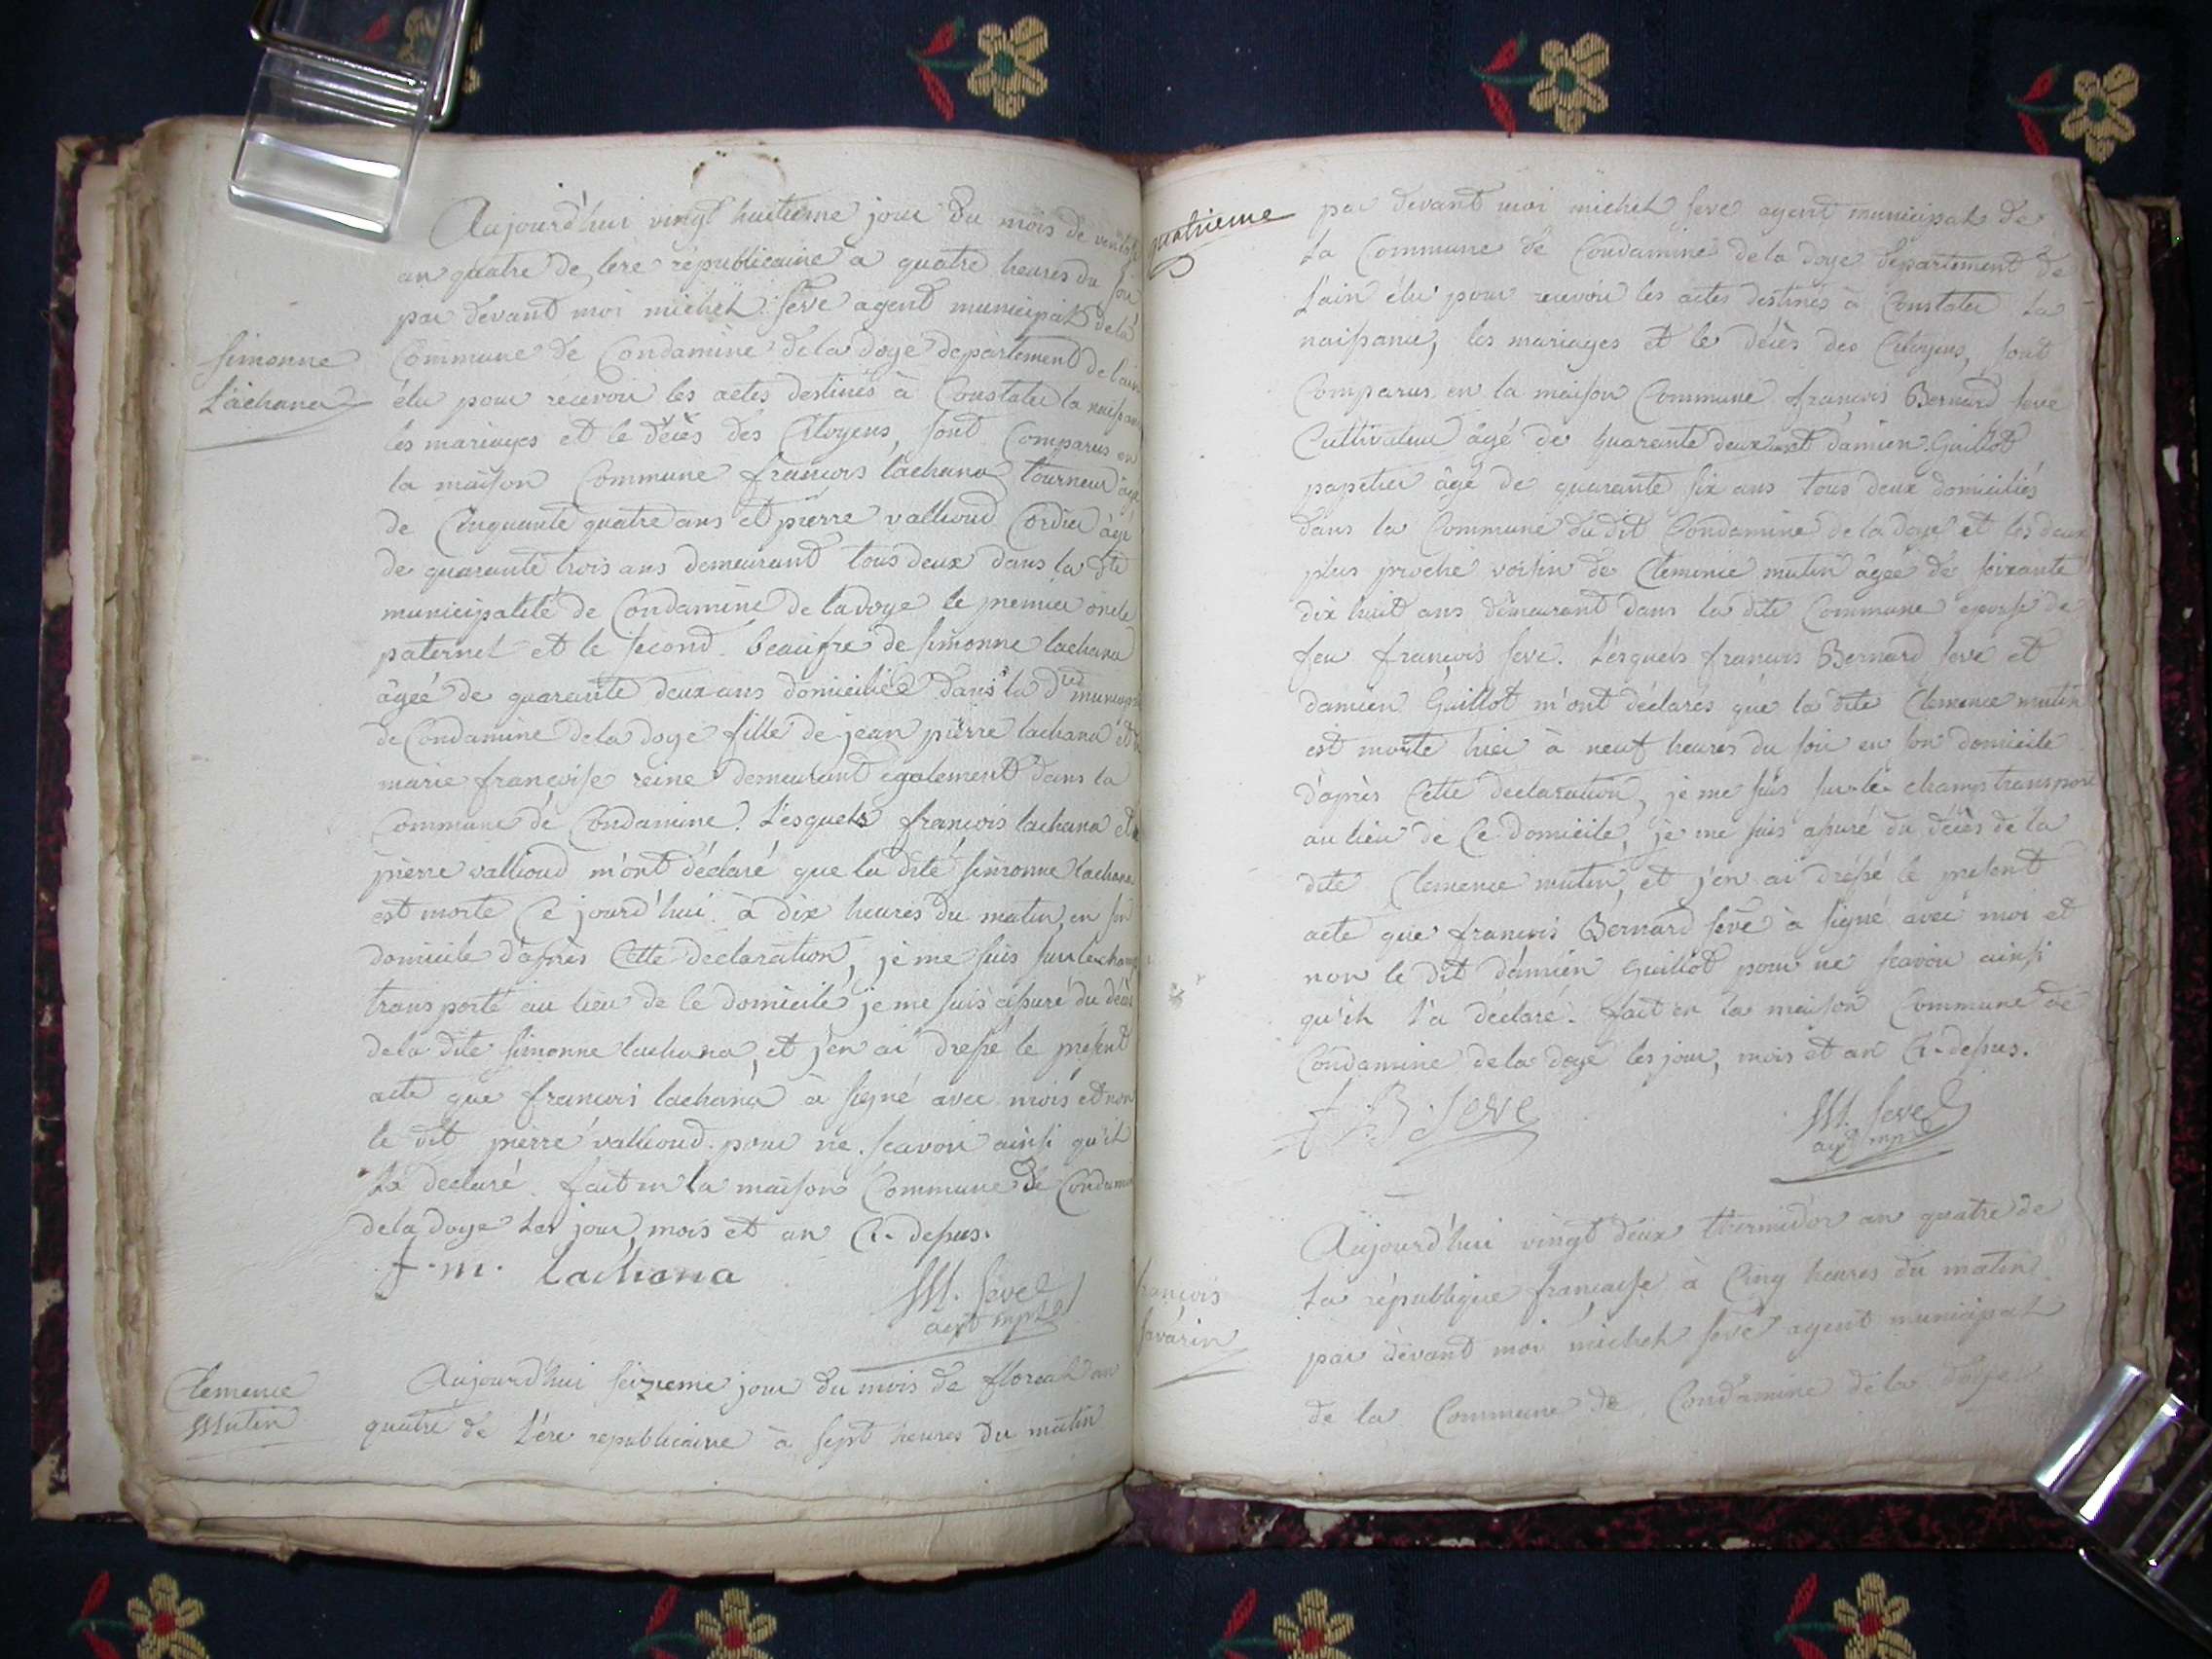 Aujourd'hui vingt huitieme jour du mois de ventose
an quatre de l'ere républicaine a quatre heures du soir
par devant moi michel seve agent municipal de la
Simonne
Lachana
Commune de Condamine de la doye departement de l'ain
élu pour recevoir les actes destinés à Constater la naissance
les mariages et le décès des Citoyens, sont Comparus en
la maison Commune françois lachana tourneur âgé
de Cinquante quatre ans et pierre vallioud Cordier âgé
de quarante trois ans demeurant tous deux dans la dte
municipalité de Condamine de la doye le premier oncle
paternel et le second beaufre de simonne lachana
âgée de quarante deux ans domiciliée dans la dte
de Condamine de la doye fille de jean pierre lachana et
marie françoise reine demeurant egalement dans la
Commune de Condamine. Lesquels françois lachana et
pierre vallioud m'ont déclaré que la dite simonne lachana
est morte Ce jourd'hui à dix heures du matin en son
domicile d'après Cette déclaration, je me suis sur le champ
transporté au lieu de Ce domicile je me suis assuré du décès
de la dite simonne lachana, et j'en ai dressé le présent
acte que françois lachana à signé avec mois et non
le dit pierre vallioud pour ne scavoir ainsi qu'il
La declaré. fait en la maison Commune de Condamine
de la doye Les jour, mois et an Ci-dessus.
f. m. Lachana
M. Seve
agt mpal
Clemence
Mutin
Aujourd'hui seizieme jour du mois de floreal an
quatre de L'ére republicaine à sept heures du matin
quatrieme
par devant moi michel seve agent municipal de
La Commune de Condamine de la doye département de
L'ain élu pour recevoir les actes destinés à Constater La
naissance, les mariages et le décès des Citoyens, sont
Comparus en la maison Commune françois Bernard seve
Cultivateur âgé de quarante deux ans et damien Guillot
papetier âgé de quarante six ans tous deux domiciliés
dans la Commune du dit Condamine de la doye et les deux
plus proche voisin de Clemence mutin âgée de soixante
dix huit ans demeurant dans la dite Commune epouse de
feu françois seve. Lesquels françois Bernard seve et
damien Guillot m'ont déclarés que la dite Clemence mutin
est morte hier à neuf heures du soir en son domicile
d'après Cette declaration, je me suis sur le champ transporté
au lieu de Ce domicile, je me suis assuré du décès de la
dite Clemence mutin, et j'en ai dréssé le present
acte que françois Bernard seve à signé avec moi et
non le dit damien Guillot pour ne scavoir ainsi
qu'il L'a déclaré. fait en la maison Commune de
Condamine de la doye les jour, mois et an Ci-dessus.
f B seve
M. Seve
agt mpal
françois
savarin
Aujourd'hui vingt deux thermidor an quatre de
La république française à Cinq heures du matin
par dévant moi michel sevé agent municipal
de la Commune de Condamine de la doye